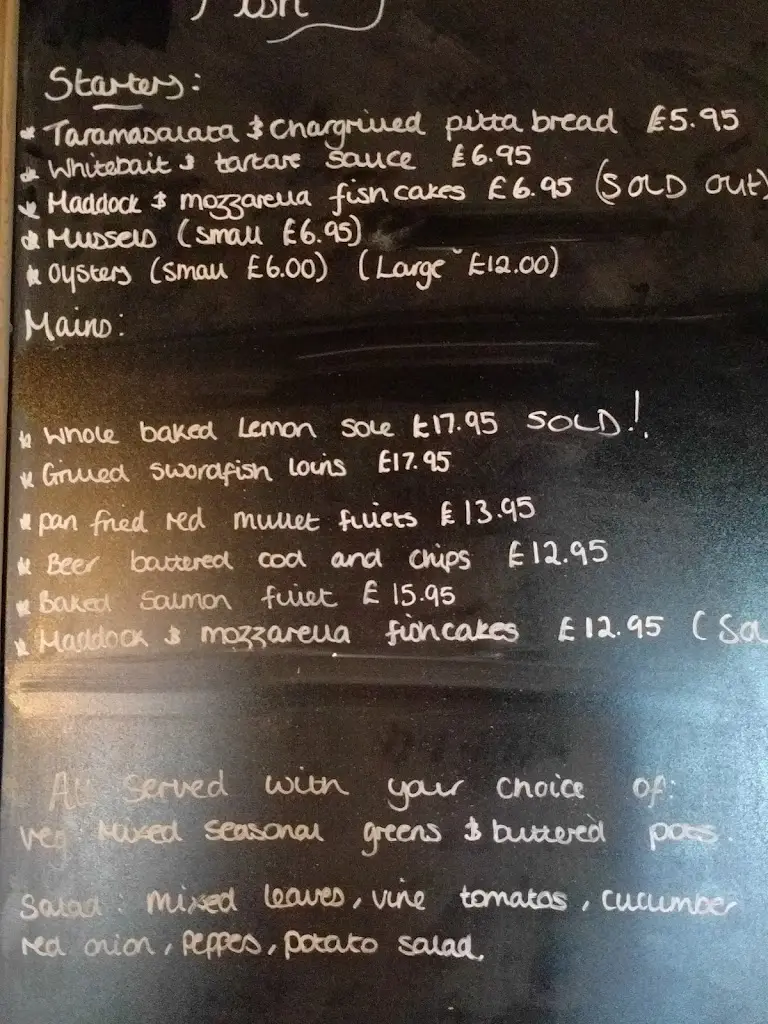 Starters:
* Taramasalata & Chargrilled pitta bread £5.95
* Whitebait & tartare sauce £6.95
* Haddock & mozzarella fishcakes £6.95 (SOLD OUT)
* Mussels (small £6.95)
* Oysters (small £6.00) (Large £12.00)
Mains:
* Whole baked Lemon sole £17.95 SOLD!
* Grilled swordfish loins £17.95
* pan fried red mullet fillets £13.95
* Beer battered cod and chips £12.95
* Baked Salmon fillet £15.95
* Haddock & mozzarella fishcakes £12.95 (So
All served with your choice of:
Veg Mixed seasonal greens & buttered pots.
Salad: mixed leaves, vine tomatos, cucumber
red onion, peppes, potato salad.